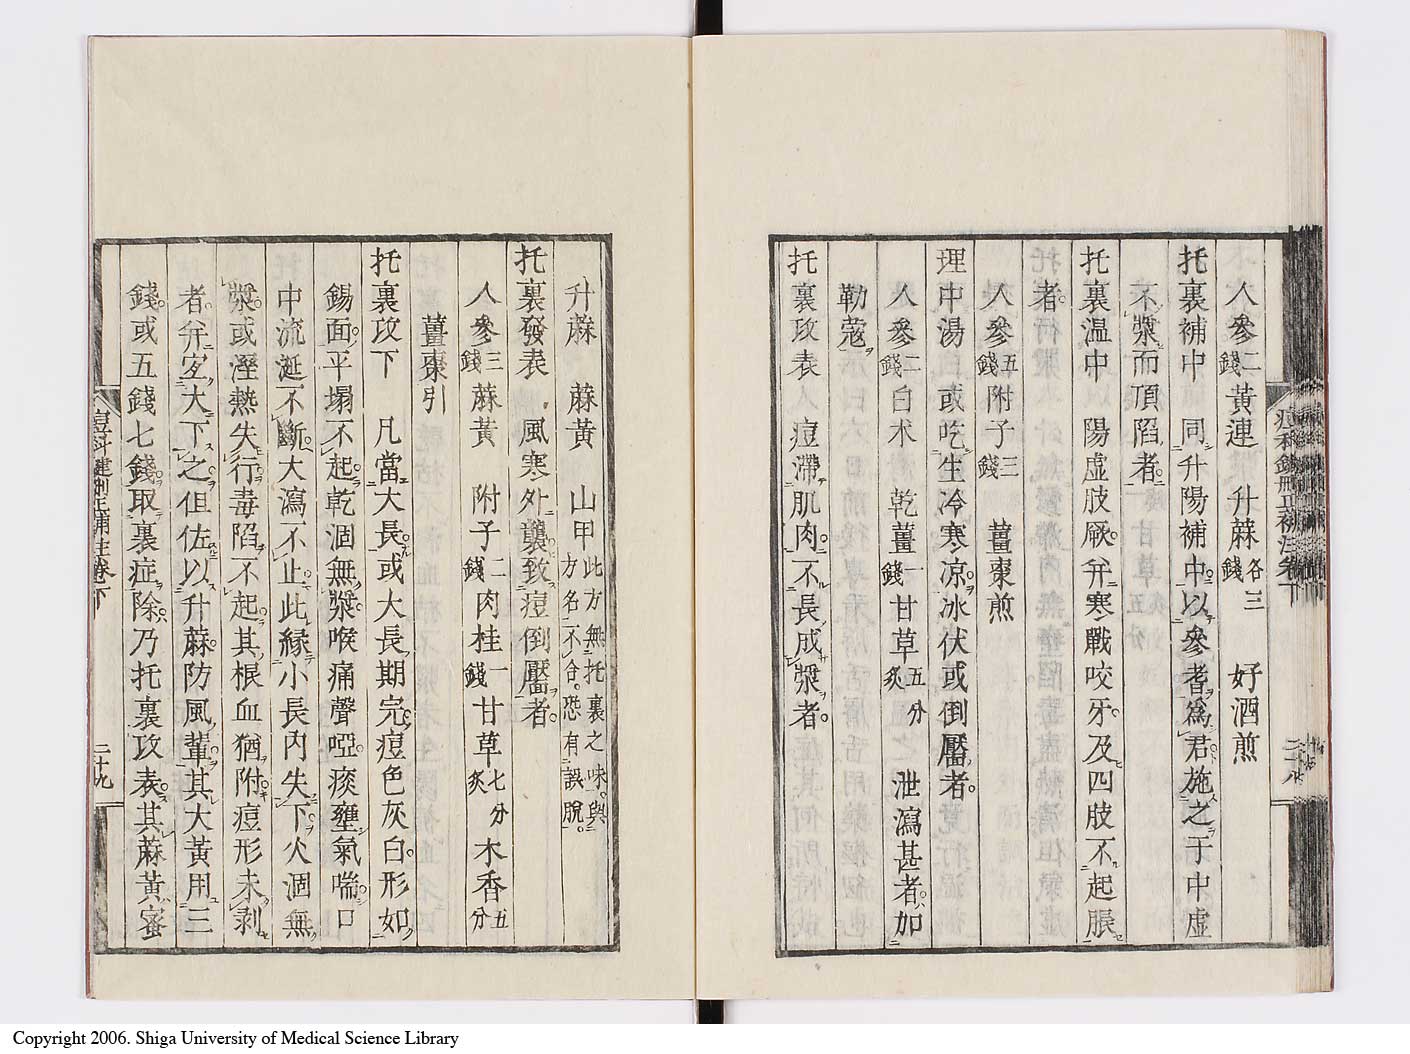 人參二錢 黃連 升蔴各三錢 好酒煎
托裏補中 同升陽補中以參耆爲君施之于中虛
不漿而頂陷者
托裏温中 陽虛肢厥弁寒戰咬牙及四肢不起脹
者
人參五錢 附子三錢 薑棗煎
理中湯 或吃生冷寒凉冰伏或倒靨者
人參二錢 白术 乾薑一錢 甘草五分炙 泄瀉甚者加
勒蔻
托裏攻表 人痘滯肌肉不長成漿者
升蔴 蔴黃 山甲 此方無托裏之味與方名不合恐有誤脫
托裏發表 風寒外襲致痘倒靨者
人參三錢 蔴黃 附子二錢 肉桂一錢 甘草七分炙 木香五分
薑棗引
托裏攻下 凡當大長或大長期完痘色灰白形如
錫面平塌不起乾涸無漿喉痛聲啞痰壅氣喘口
中流涎不斷大瀉不止此緣小長內失下火涸無
漿或溼熱失行毒陷不起其根血猶附痘形未剥
者弁宜大下之但佐以升蔴防風輩其大黃用三
錢或五錢七錢取裏症除乃托裏攻表其蔴黃蜜
痘科鍵刪正補注卷下
二十九
Copyright 2006. Shiga University of Medical Science Library